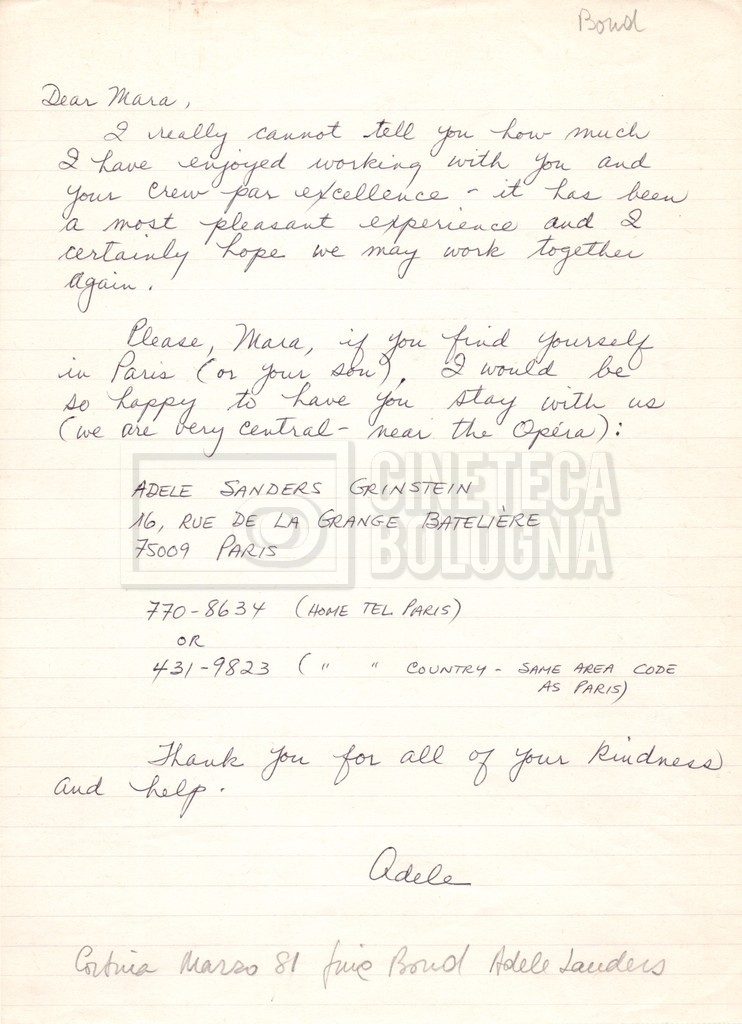 Bond
Dear Mara,
I really cannot tell you how much
I have enjoyed working with you and
your crew par excellence - it has been
a most pleasant experience and I
certainly hope we may work together
again.
Please, Mara, if you find yourself
in Paris (or your son), I would be
so happy to have you stay with us
(we are very central - near the Opéra):
ADELE SANDERS GRINSTEIN
16, RUE DE LA GRANGE BATELIÈRE
75009 PARIS
CINETECA
BOLOGNA
770-8634 (HOME TEL PARIS)
OR
431-9823 ( " " COUNTRY - SAME AREA CODE
AS PARIS)
Thank you for all of your kindness
and help.
Adele
Cortina Marzo 81 fine Bond Adele Sanders